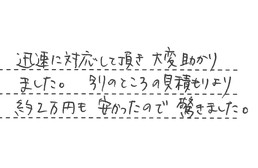 迅速に対応して頂き 大変助かり
ました。 別のところの見積もりより
約2万円も 安かったので 驚きました。